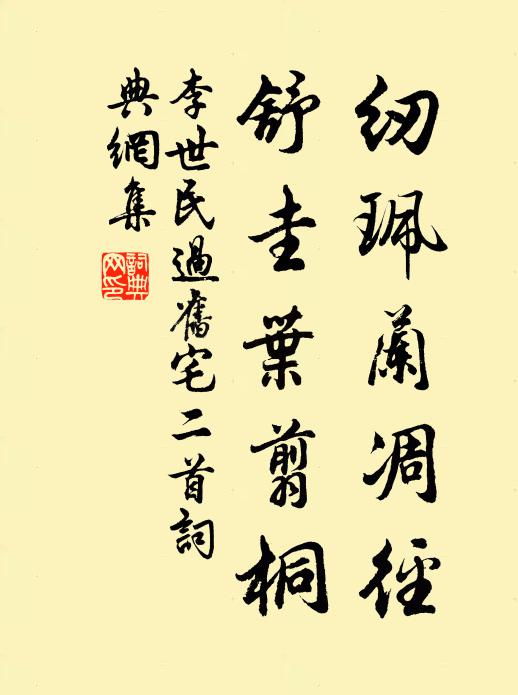 纫珮蘭凋徑
舒圭葉翦桐
李世民過舊宅二首詞
典網集
詞典网印